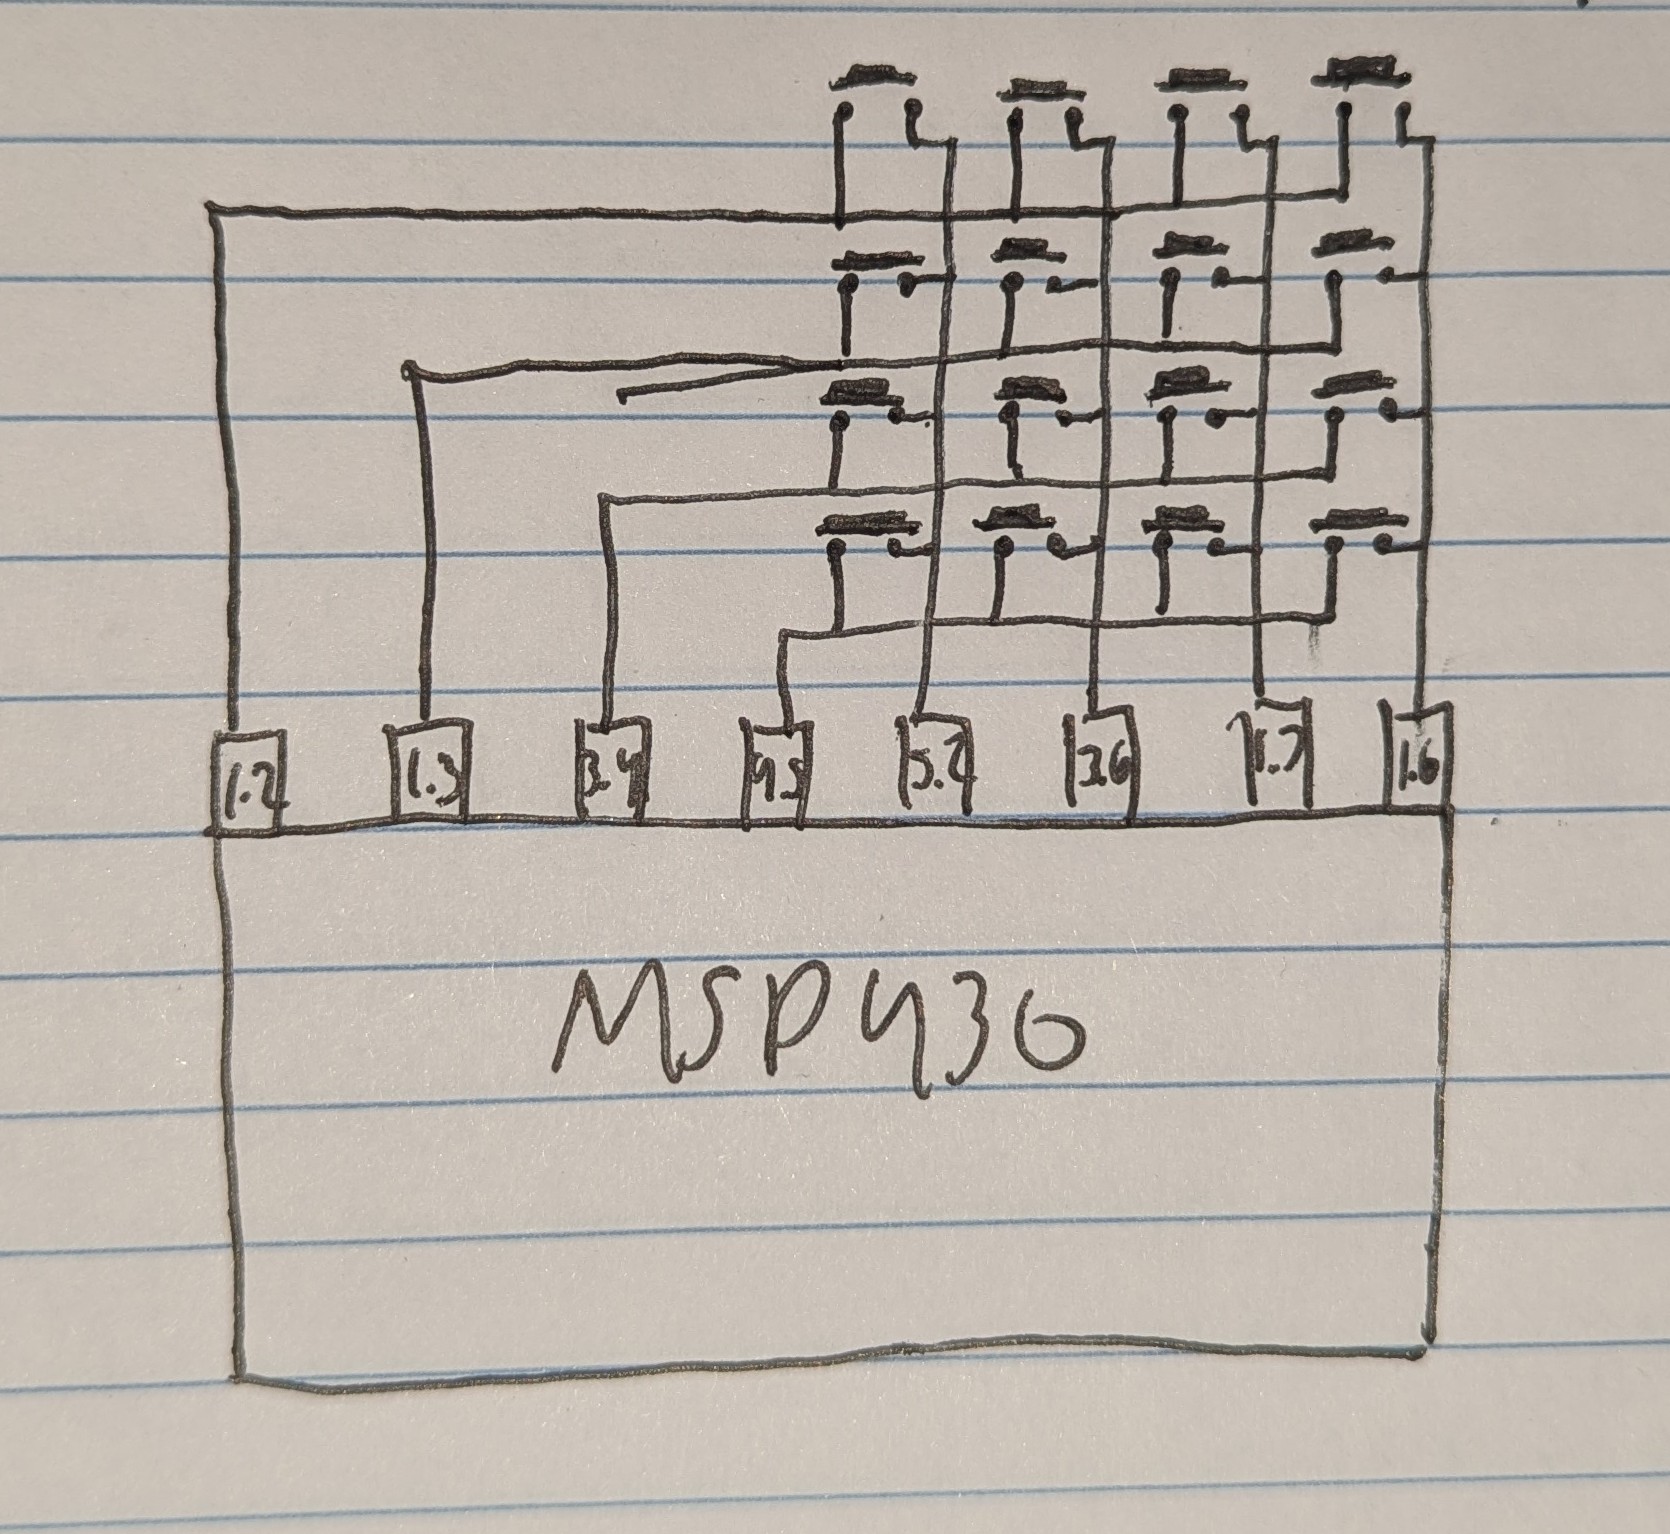 1.2 1.3 3.4 4.5 5.2 3.6 1.7 1.6
MSP430